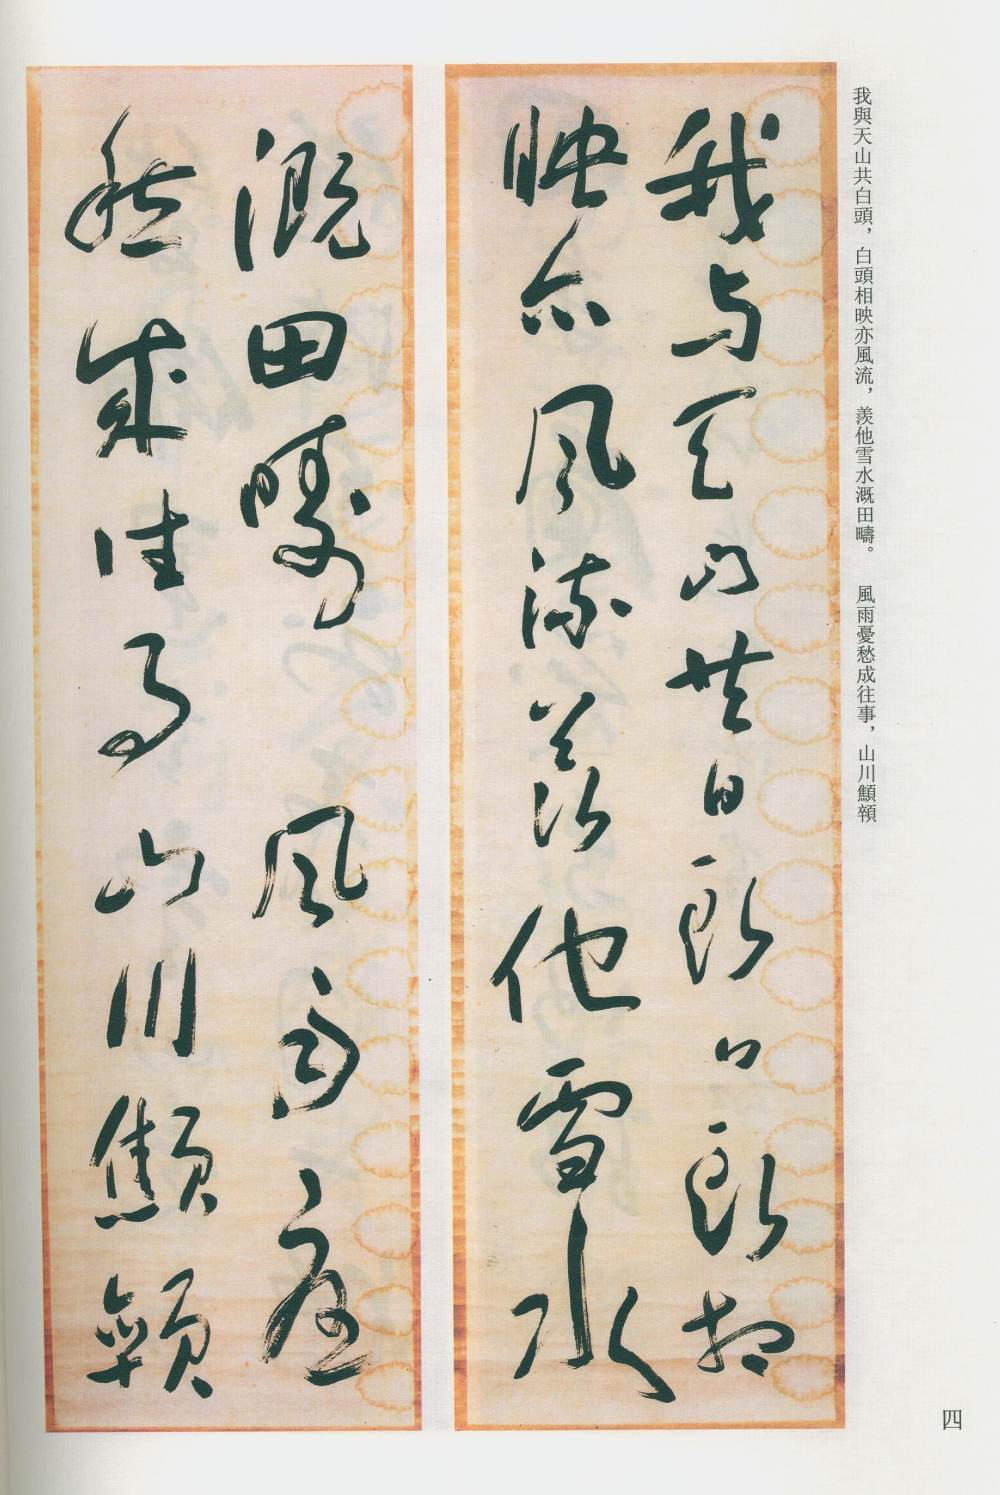 我與天山共白頭，白頭相映亦風流，羨他雪水溉田疇。 風雨憂愁成往事，山川顦顇
我与天山共白頭白頭相
映亦風流羨他雪水
溉田疇 風雨憂
愁成往事山川顦顇
四